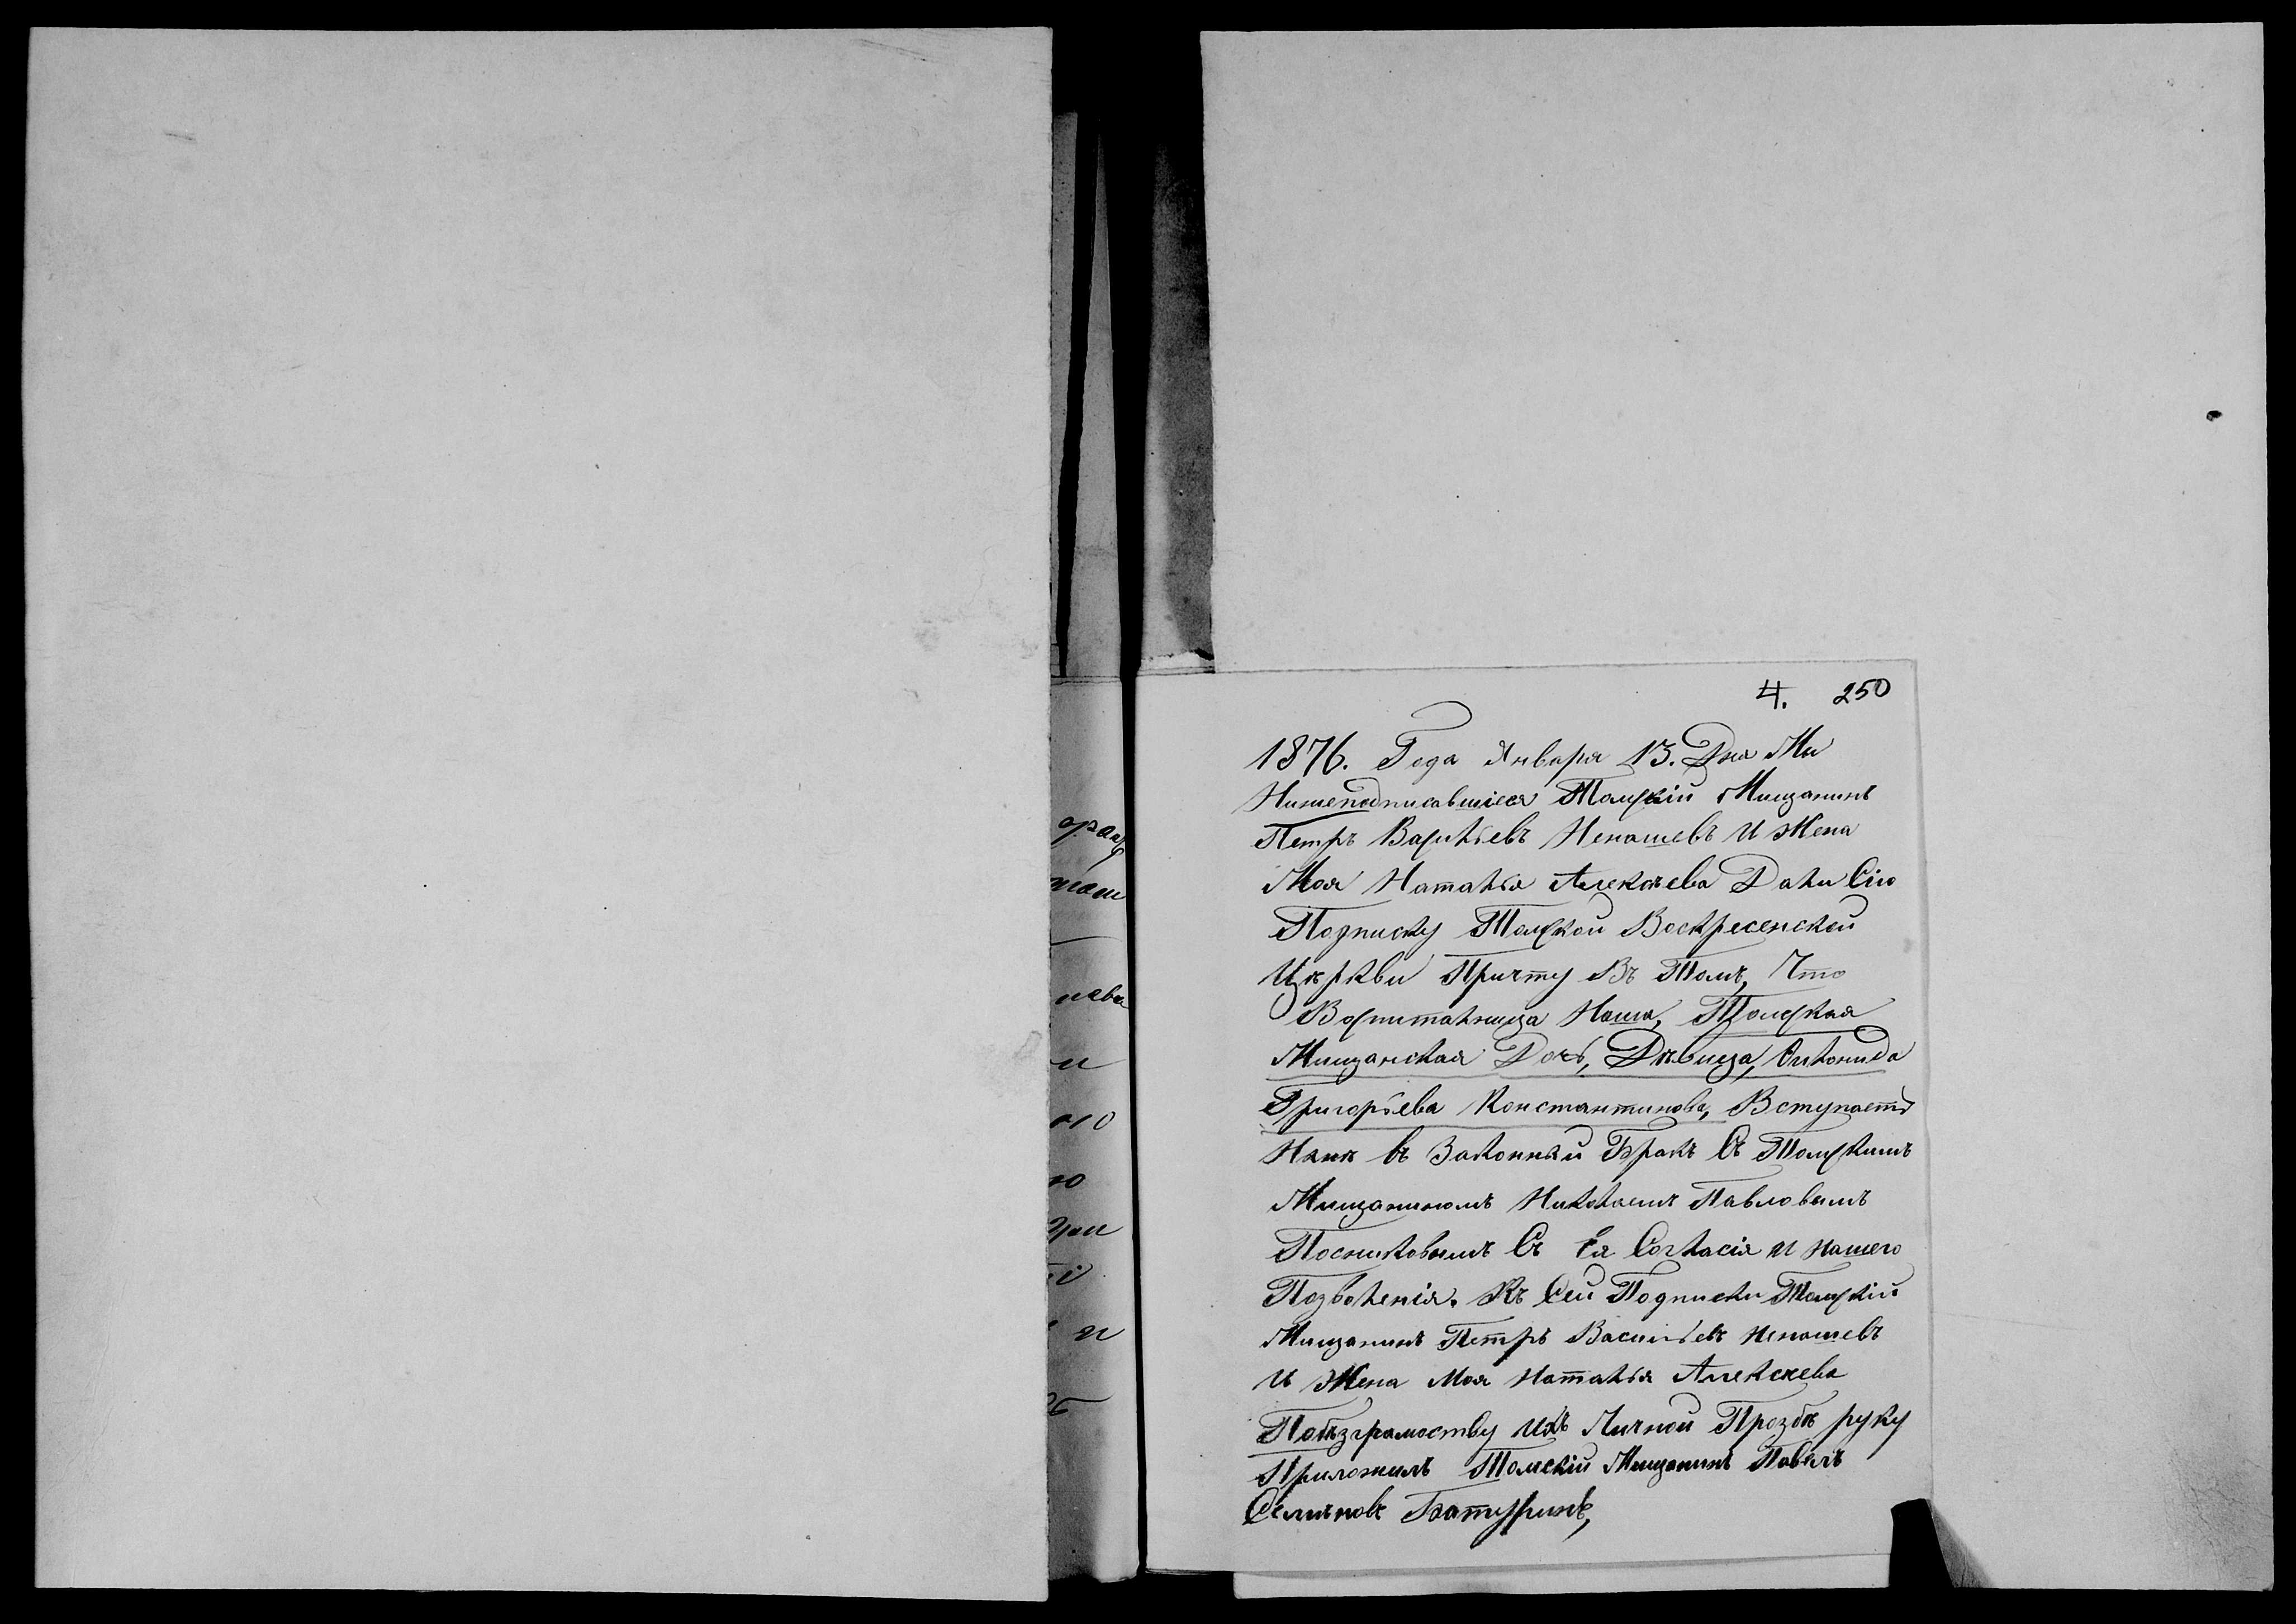 4. 250
1876. Года Января 13. Дня Мы
Нижеподписавшіеся Томскій Мищанинъ
Петръ Васильевъ Ненашевъ И Жена
Моя Наталья Алексѣева Дали Сію
Подписку Томской Воскресенской
Цѣркви Причту Въ Томъ, Что
Воспитаница Наша, Томская
Мищанская Дочь, Дѣвица,
Григорьева Константинова, Вступаетъ
Нынѣ въ Законный Бракъ Съ Томскимъ
Мищаниномъ Николаемъ Павловымъ
Посниковымъ Съ Ея Согласія и нашего
Позволенія. Къ Сей Подписки Томскій
Мищанинъ Петръ Васильевъ Ненашевъ
И Жена Моя Наталья Алексѣева
Побѣзграмоству Ихъ Личной Прозбѣ руку
Приложилъ Томскій Мищанинъ Павелъ
Семѣновъ Батуринъ,